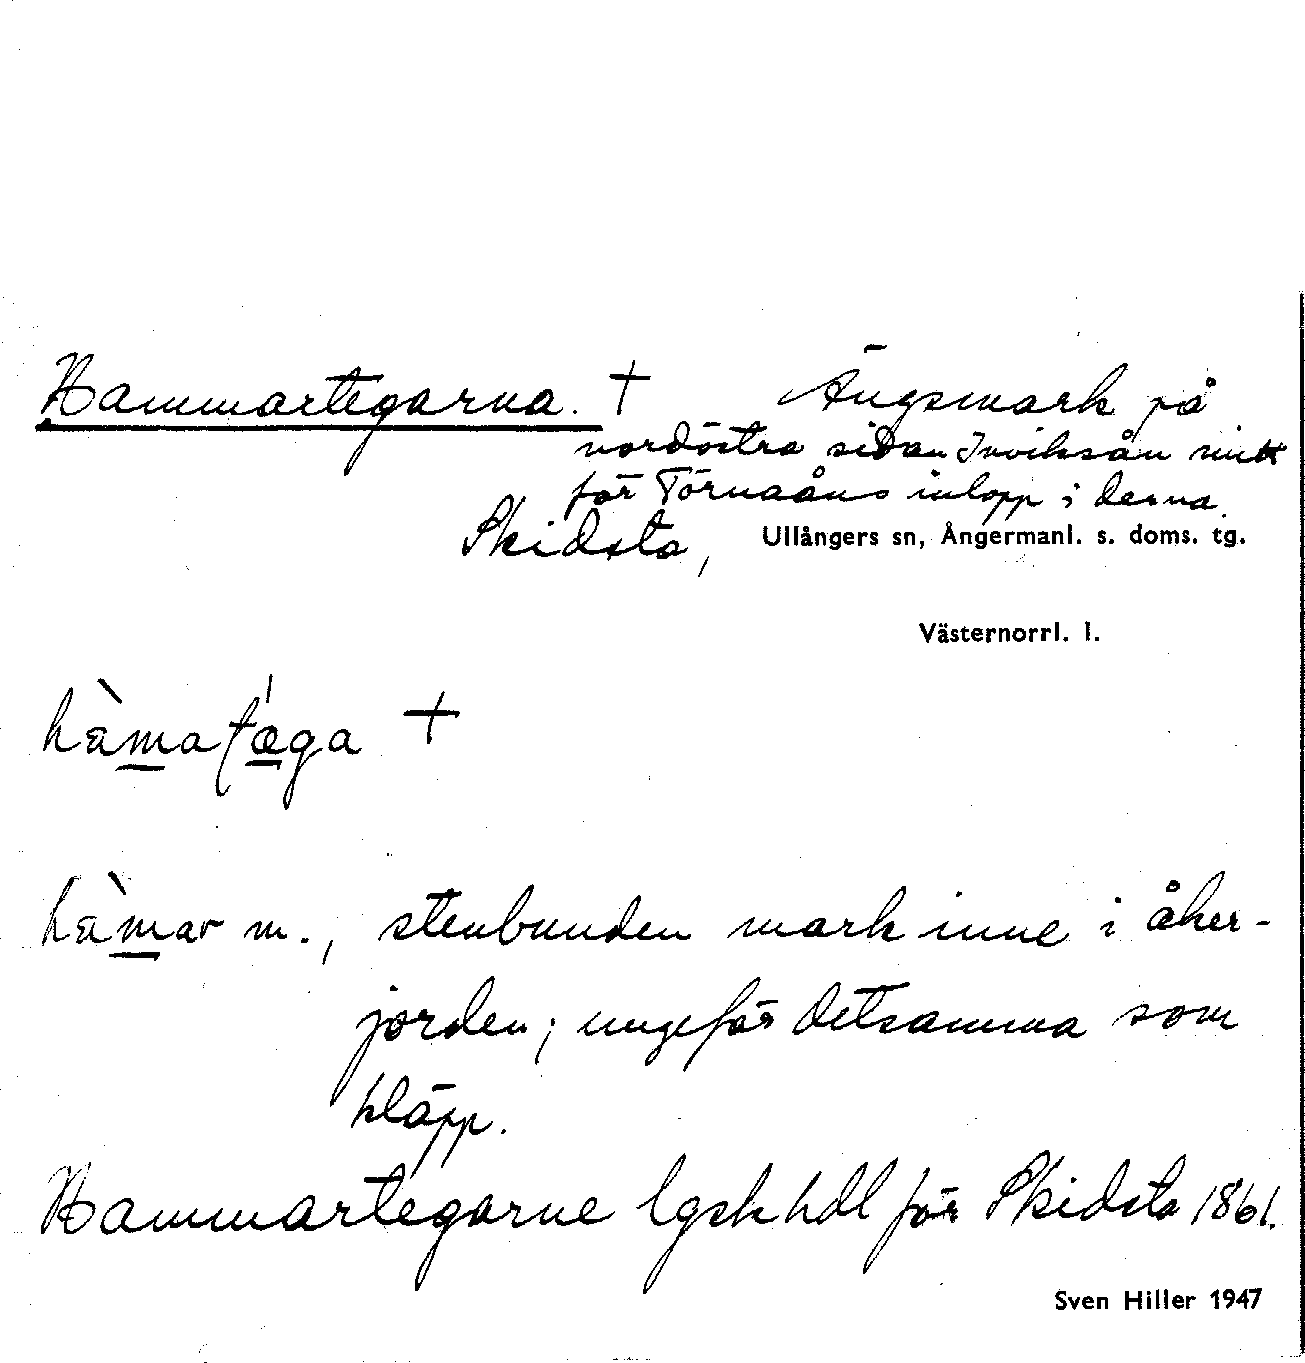 Hammartegarna. † Ängsmark på
nordöstra sidan Inviksån mitt
för Törnaåns inlopp i denna.
Skidsta, Ullångers sn, Ångermanl. s. doms. tg.
Västernorrl. l.
hàmatǽga †
hàmar m., stenbunden mark inne i åker-
jorden; ungefär detsamma som
kläpp.
Hammartegarne lgskhdl för Skidsta 1861.
Sven Hiller 1947